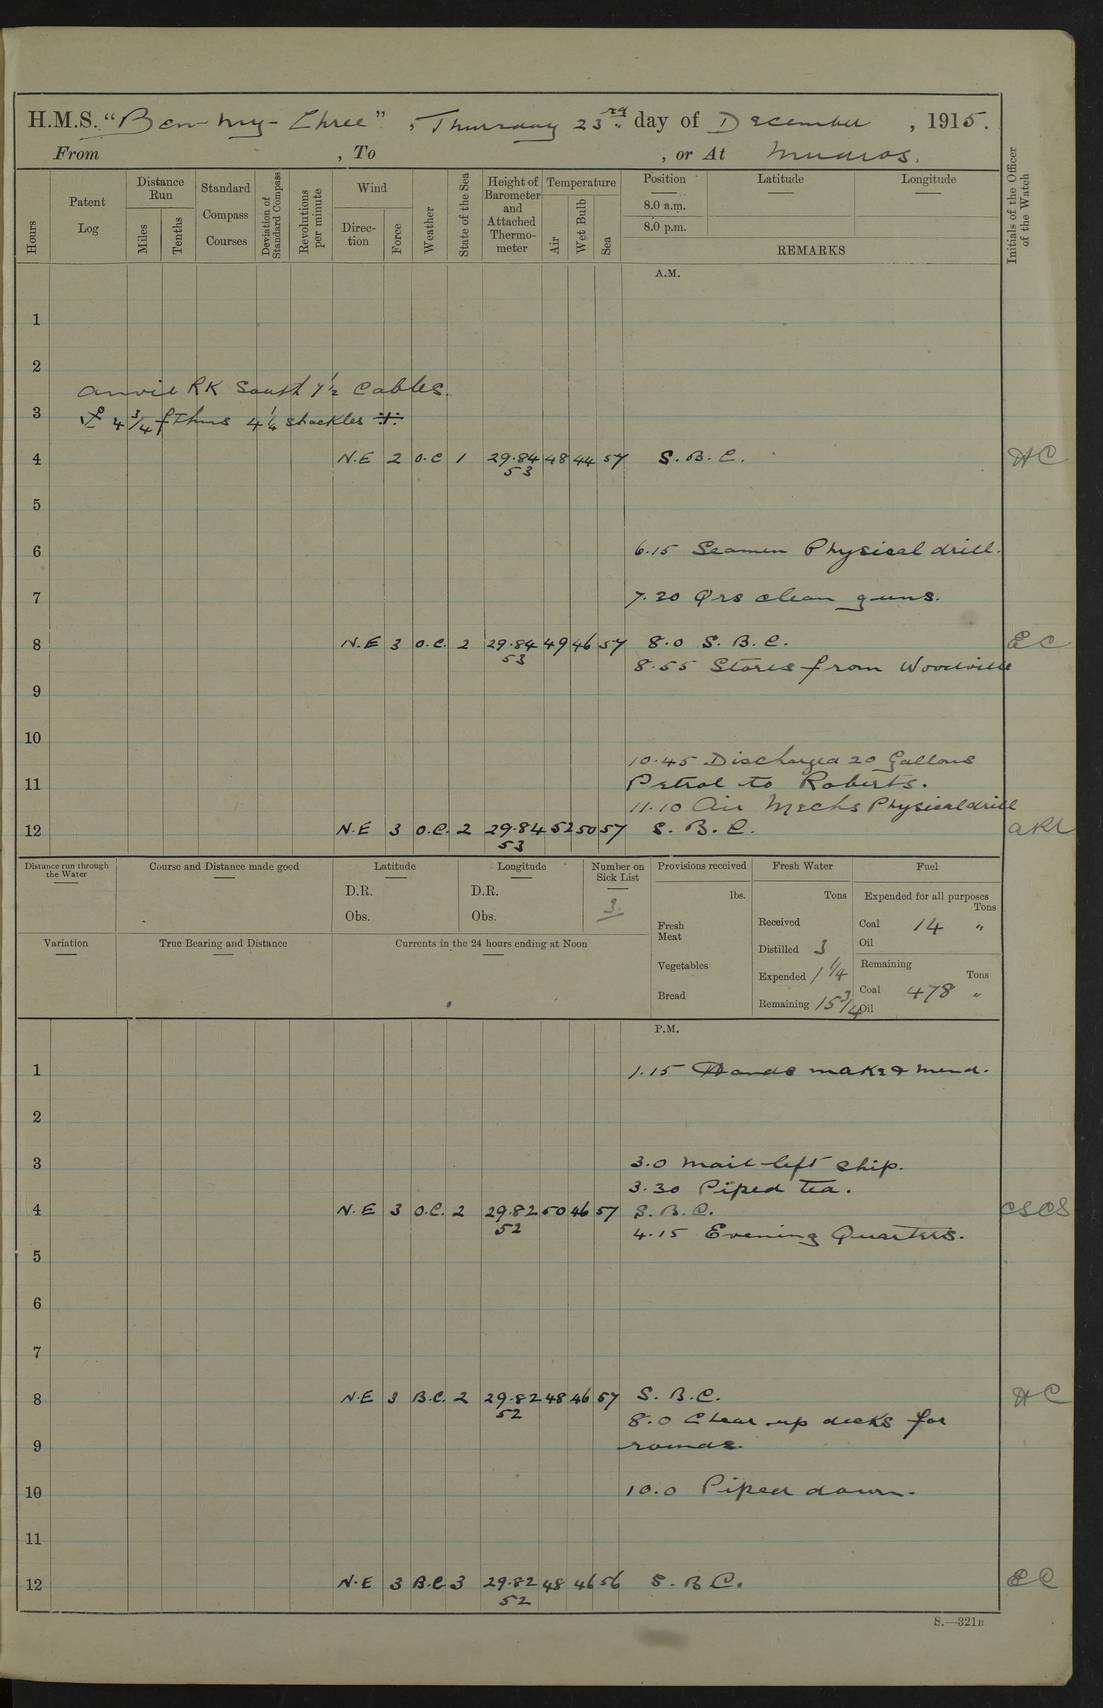 H.M.S. "Ben-my-Chree", Thursday 23rd day of December, 1915.
From , To , or At Mudros.
Hours
Patent Log
Distance Run
Miles
Tenths
Standard Compass Courses
Deviation of Standard Compass
Revolutions per minute
Wind
Direction
Force
Weather
State of the Sea
Height of Barometer and Attached Thermometer
Temperature
Air
Wet Bulb
Sea
Position
8.0 a.m.
8.0 p.m.
Latitude
Longitude
REMARKS
Initials of the Officer of the Watch
A.M.
1
2
Anvil RK South 7½ Cables.
3
4¾ fthms 4¼ shackles
4 N.E 2 O.C 1 29.84 48 44 57 S.B.C. HC
53
5
6 6.15 Seamen Physical drill.
7 7.20 Qrs clean guns.
8 N.E 3 O.C. 2 29.84 49 46 57 8.0 S.B.C. EC
53
8.55 Stores from Woodville
9
10
10.45 Discharged 20 Gallons
11 Petrol to Roberts.
11.10 Air Mechs Physical drill
12 N.E 3 O.C. 2 29.84 52 50 57 S.B.C.
53
Distance run through the Water
Course and Distance made good
Latitude
D.R.
Obs.
Longitude
D.R.
Obs.
Number on Sick List
3
Provisions received
lbs.
Fresh Meat
Vegetables
Bread
Fresh Water
Tons
Received
Distilled 3
Expended 1¼
Remaining 15¾
Fuel
Expended for all purposes
Tons
Coal 14 "
Oil
Remaining
Tons
Coal 478 "
Oil
Variation
True Bearing and Distance
Currents in the 24 hours ending at Noon
P.M.
1 1.15 Hands make & mend.
2
3 3.0 Mail left ship.
3.30 Piped tea.
4 N.E 3 O.C. 2 29.82 50 46 57 S.B.C. CSCS
52
4.15 Evening Quarters.
5
6
7
8 N.E 3 B.C. 2 29.82 48 46 57 S.B.C. HC
52
8.0 Clear up decks for
9 rounds.
10 10.0 Piped down.
11
12 N.E 3 B.C 3 29.82 48 46 56 S.B.C. EC
52
S.—321B